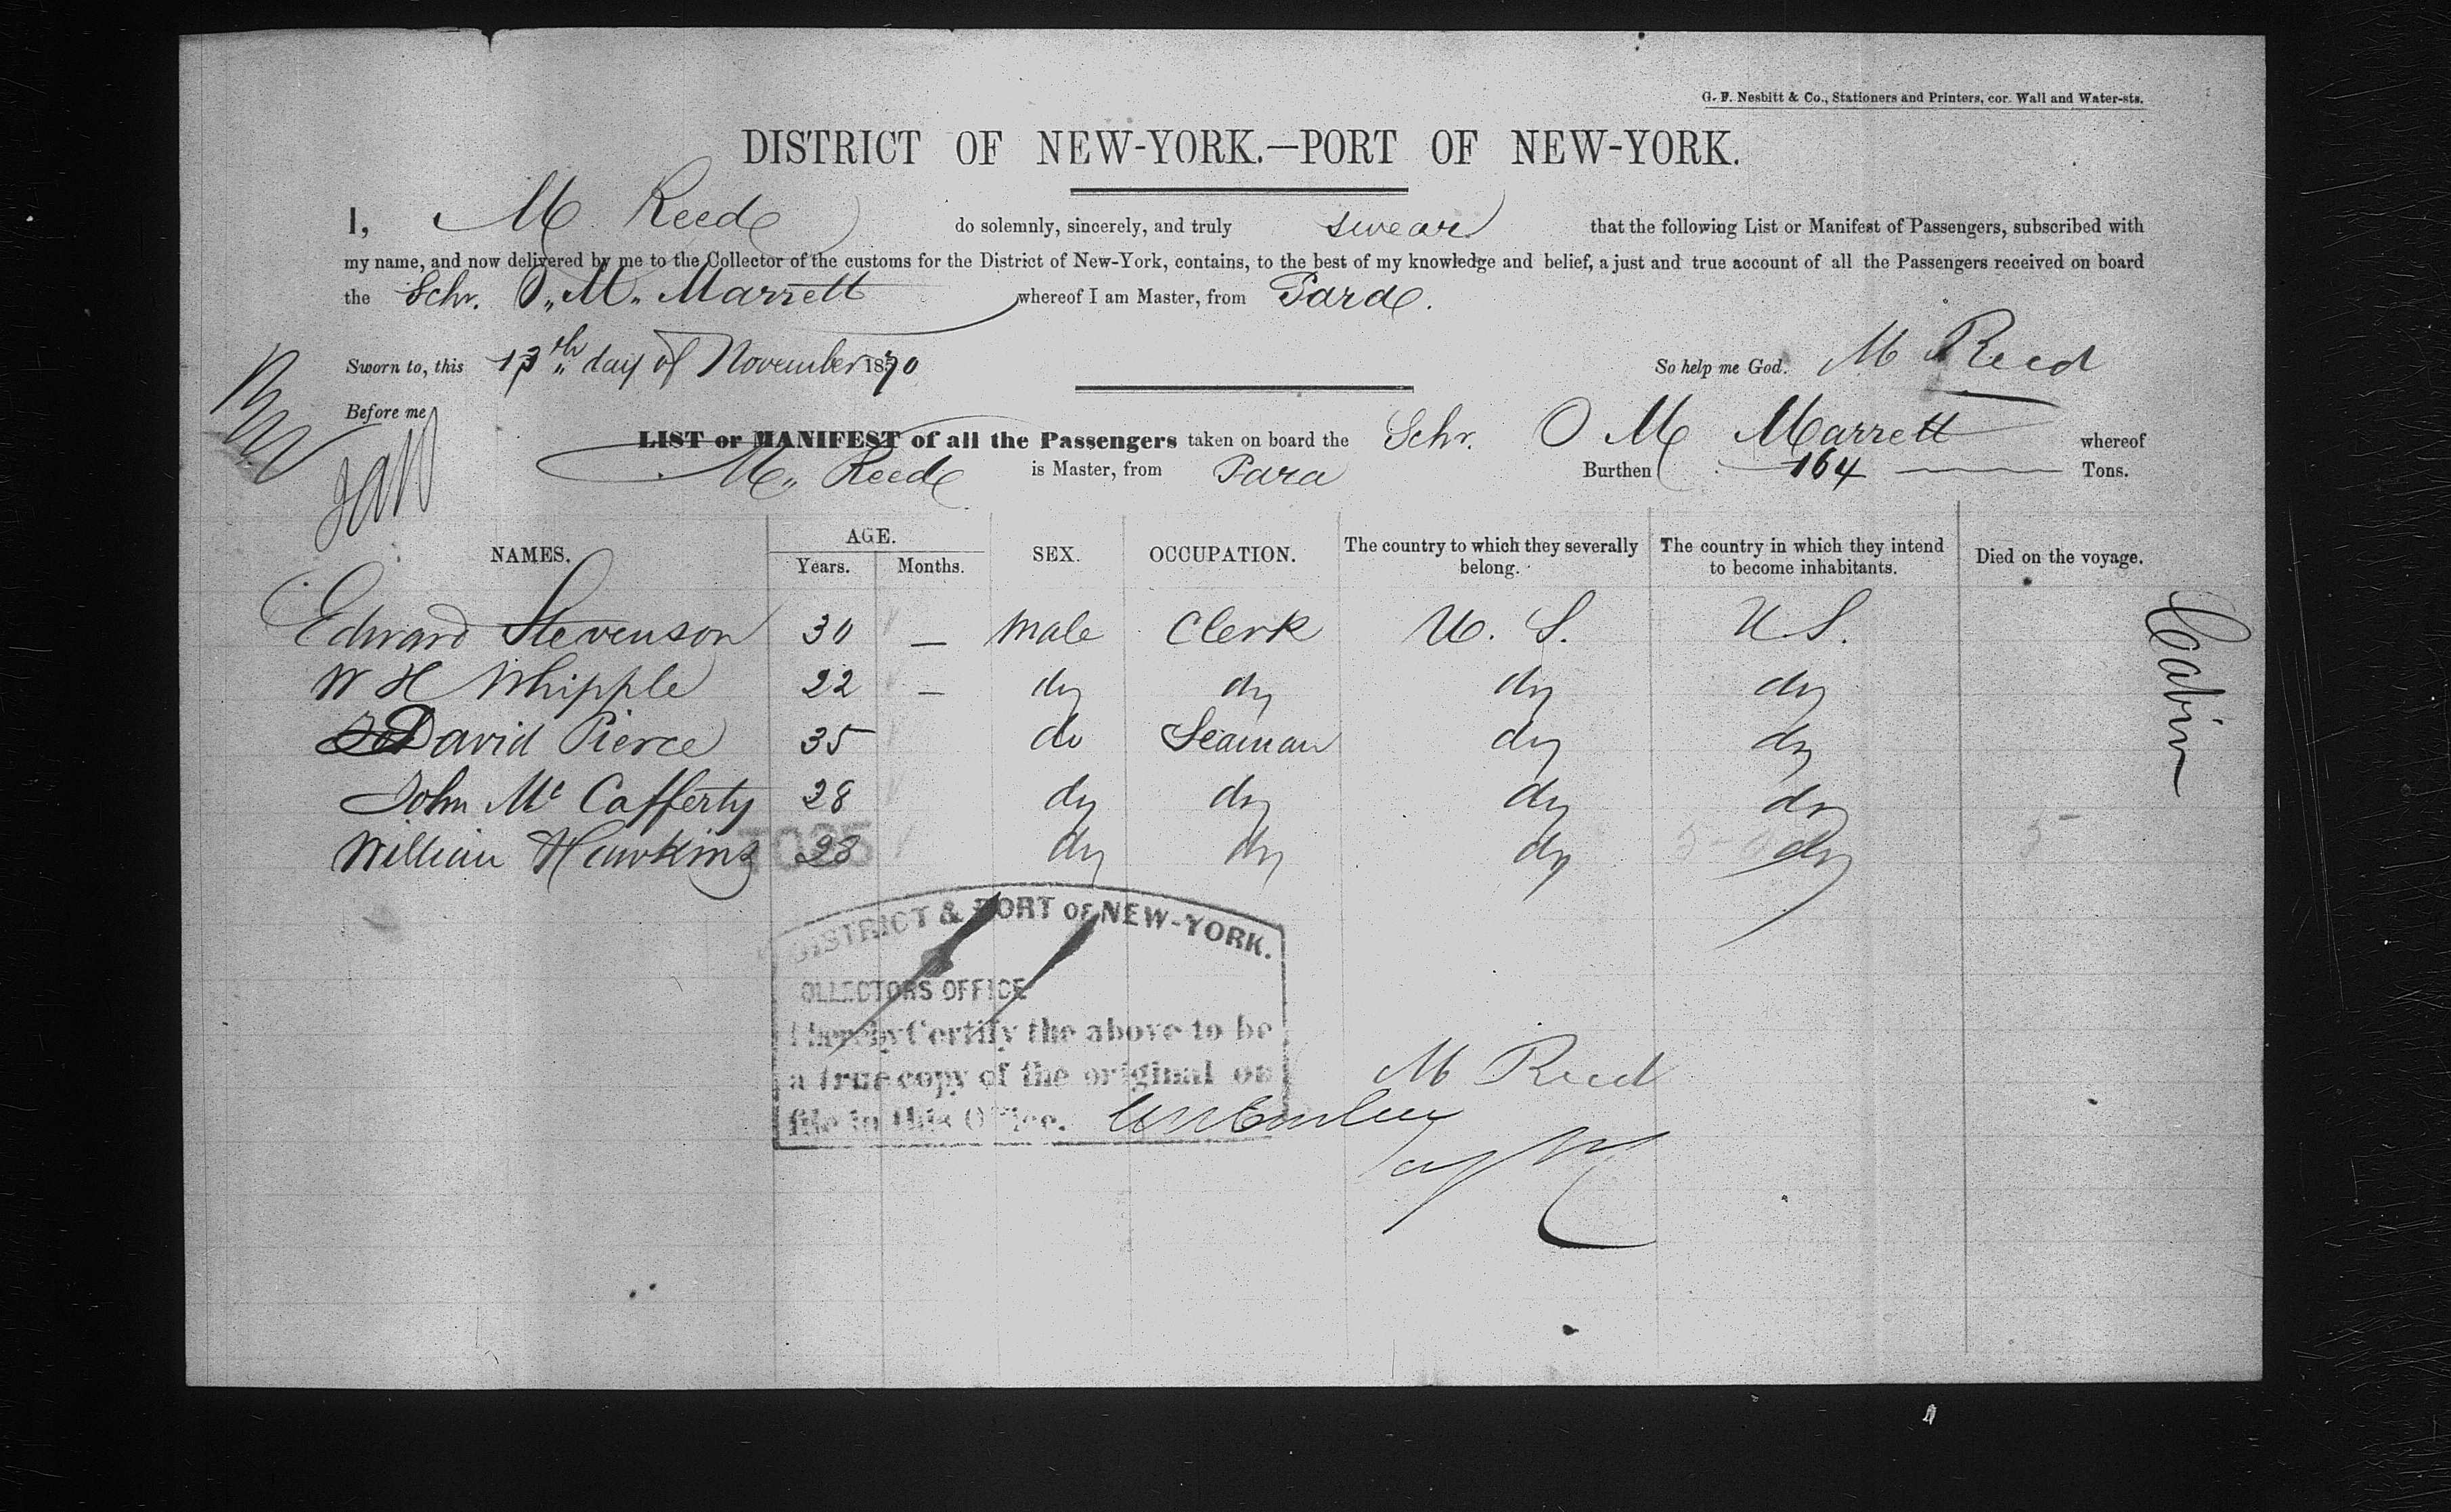 G. F. Nesbitt & Co., Stationers and Printers, cor. Wall and Water-sts.
DISTRICT OF NEW-YORK.—PORT OF NEW-YORK.
I, M Reed do solemnly, sincerely, and truly swear that the following List or Manifest of Passengers, subscribed with
my name, and now delivered by me to the Collector of the customs for the District of New-York, contains, to the best of my knowledge and belief, a just and true account of all the Passengers received on board
the Schr. O,, M,, Marrett whereof I am Master, from Para.
Sworn to, this day of November 1870 So help me God. M Reed
Before me
LIST or MANIFEST of all the Passengers taken on board the Schr. O M Marrett whereof
M,, Reed is Master, from Para Burthen 164 Tons.
NAMES. AGE. Years. Months. SEX. OCCUPATION. The country to which they severally belong. The country in which they intend to become inhabitants. Died on the voyage.
Edward Stevenson 30 — Male Clerk U. S. U S.
W H Whipple 22 — do do do do
David Pierce 35 do Seaman do do
John Mc Cafferty 28 do do do do
William Hawkins 28 do do do do
Cabin
5
DISTRICT & PORT OF NEW-YORK.
OLLECTORS OFFICE
I hereby Certify the above to be
a true copy of the original on
file in this Office.
M Reed